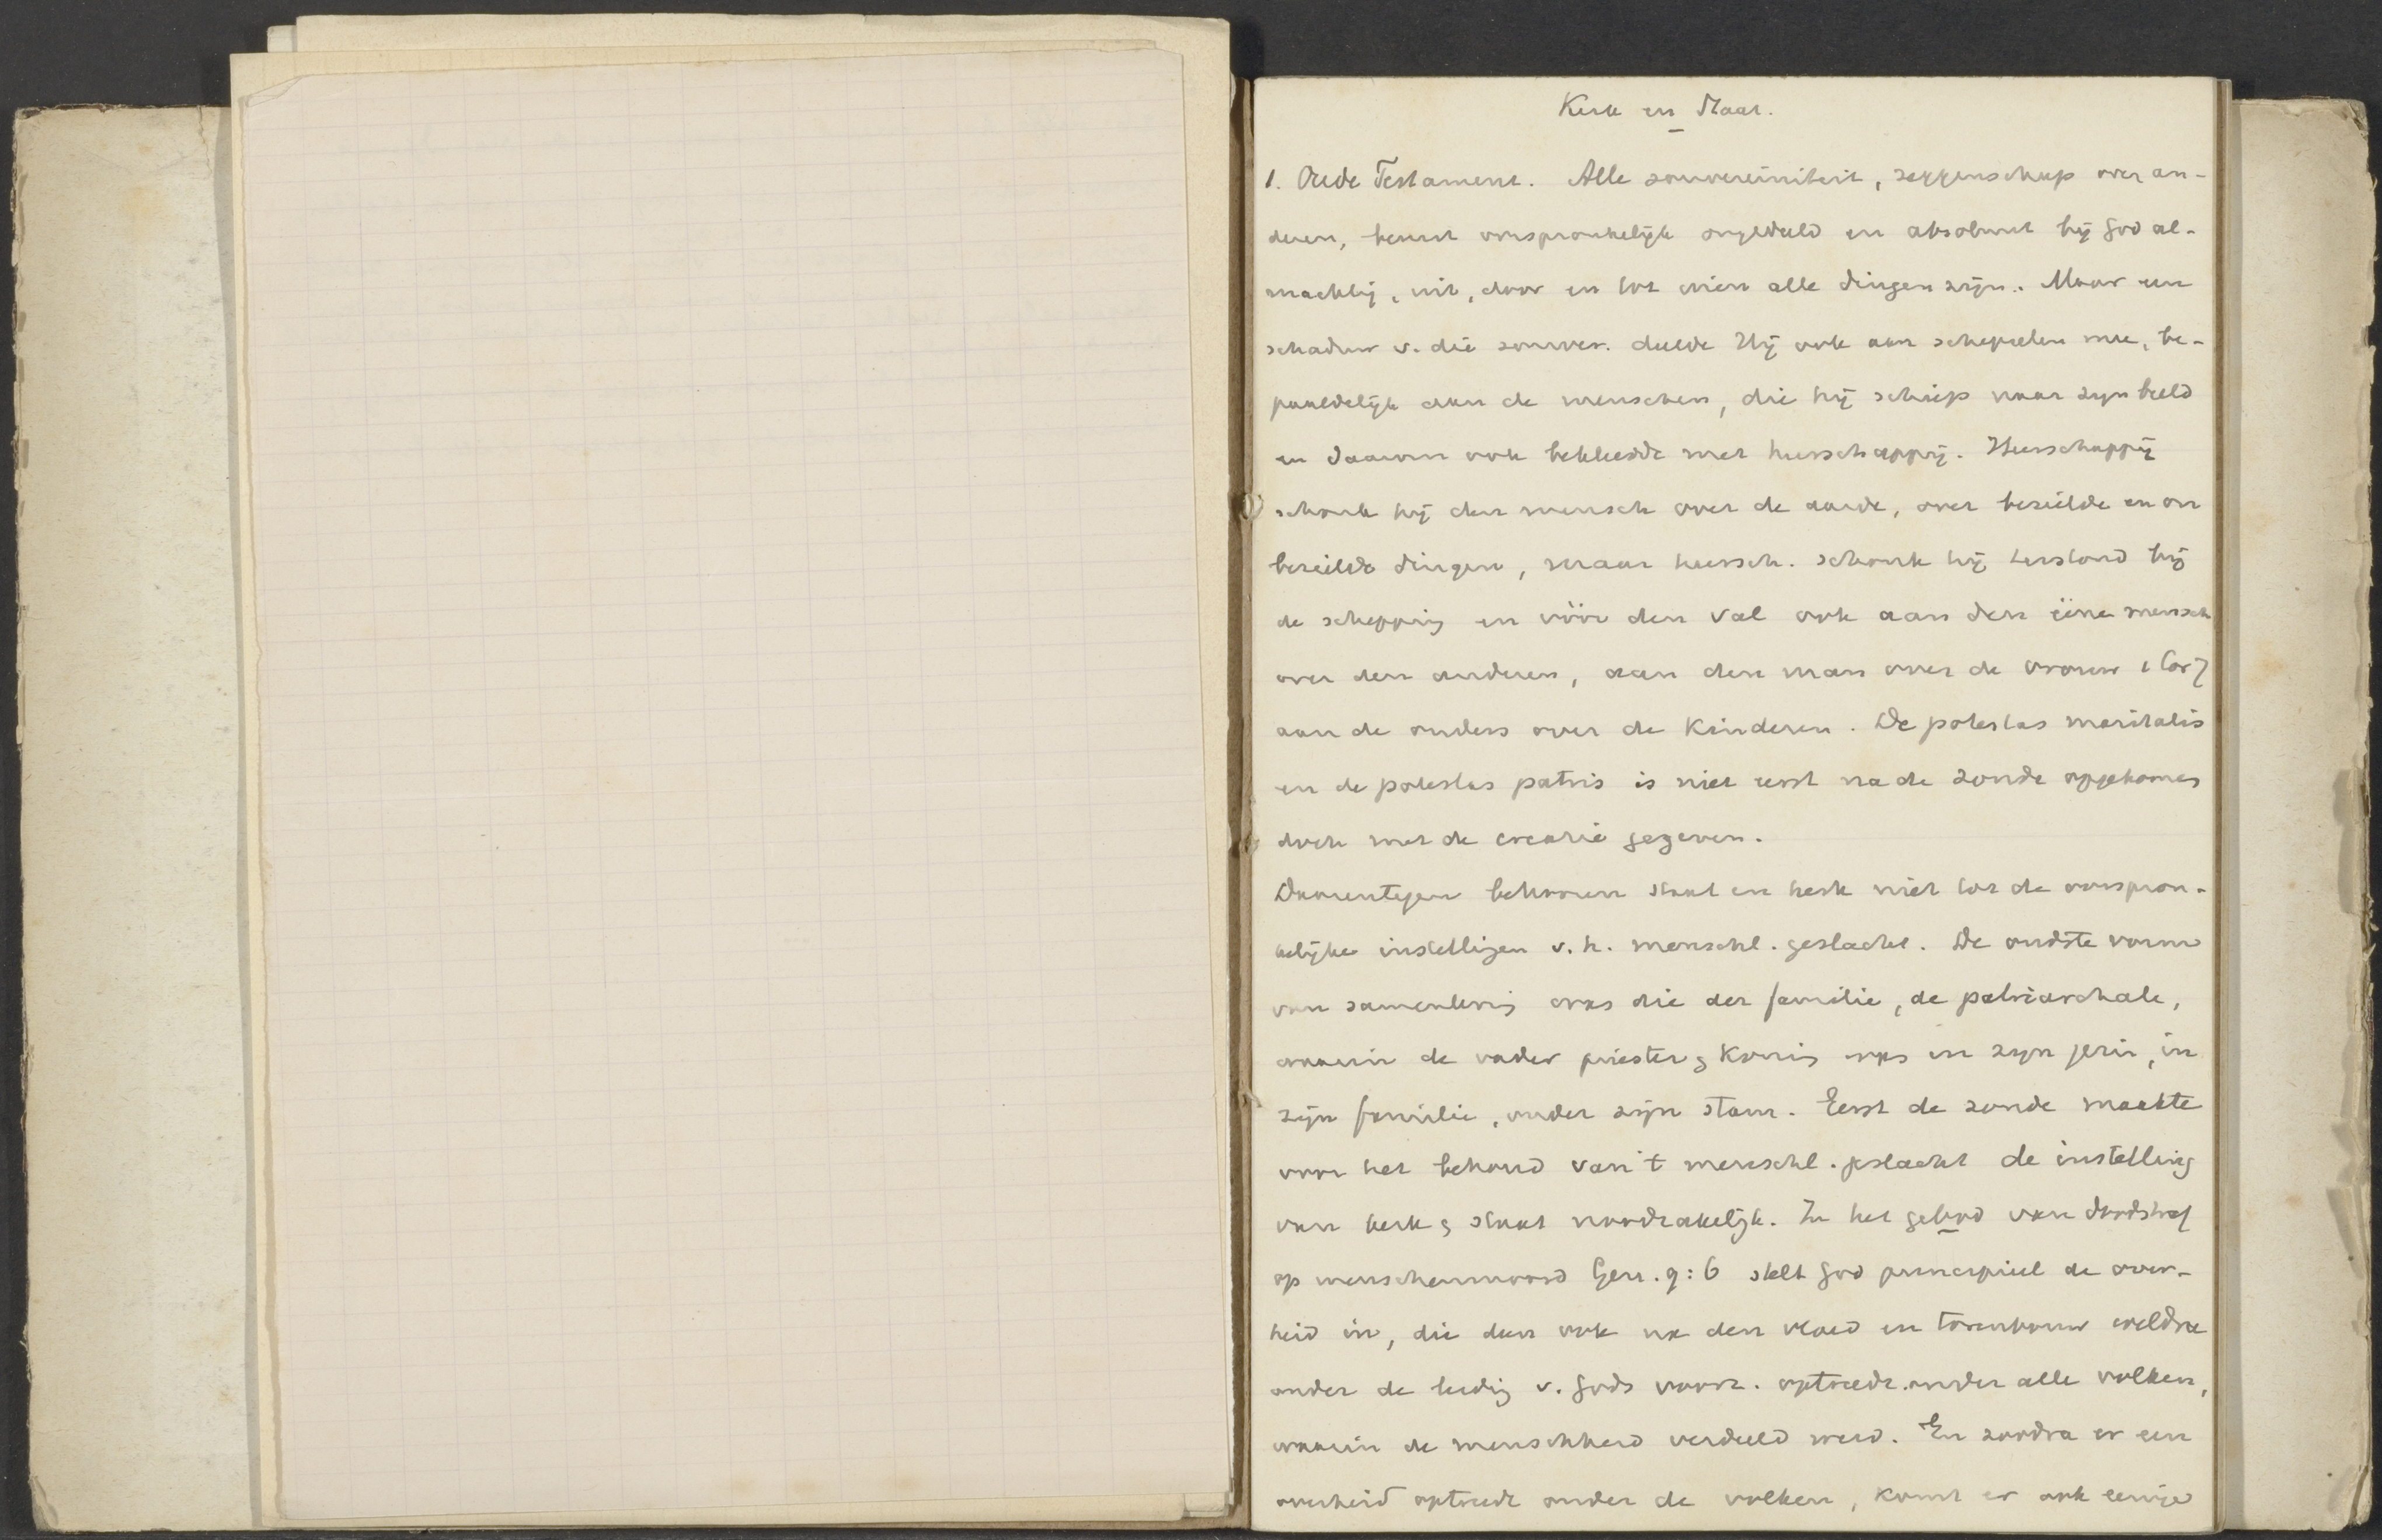 Kerk en Staat.
1. Oude Testament. Alle souvereiniteit, zeggenschap over an-
deren, berust oorspronkelijk ongedeeld en absoluut bij God al-
machtig, uit, door en tot wien alle dingen zijn. Maar een
schaduw v. die souver. deelde Hij ook aan schepselen mee, be-
paaldelijk aan de menschen, die hij schiep naar zijn beeld
en daarom ook bekleedde met heerschappij. Heerschappij
schonk hij den mensch over de aarde, over bezielde en on
bezielde dingen, maar heersch. schonk hij terstond bij
de schepping en vóór den val ook aan den éénen mensch
over den anderen, aan den man over de vrouw 1 Cor 7
aan de ouders over de kinderen. De potestas maritalis
en de potestas patris is niet eerst na de zonde opgekomen
doch met de creatie gegeven.
Daarentegen behooren staat en kerk niet tot de oorspron-
kelijke instellingen v. h. menschl. geslacht. De oudste vorm
van samenleving was die der familie, de patriarchale,
waarin de vader priester & koning was in zijn gezin, in
zijn familie, onder zijn stam. Eerst de zonde maakte
voor het behoud van 't menschl. geslacht de instelling
van kerk & staat noodzakelijk. In het gebod van doodstraf
op menschenmoord Gen. 9:6 stelt God principieel de over-
heid in, die dan ook na den vloed en torenbouw weldra
onder de leiding v. Gods voorz. optreedt onder alle volken,
waarin de menschheid verdeeld werd. En zoodra er een
overheid optreedt onder de volken, komt er ook eenige